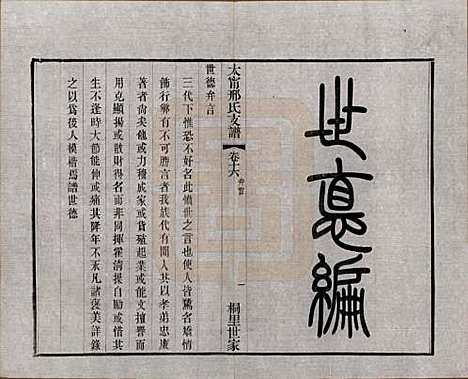 世悳編
太甯邢氏支譜 卷六 弁言 一 桐里世家
世德弁言
三代下惟恐不好名此憤世之言也使人皆騖名矯情
飾行寧有不可勝言者我族代有聞人其以孝弟忠廉
著者尚矣他或力穡成家或貨殖起業或能文擅譽而
用克顯揚或散財得名而非同揮霍清操自勵或惜其
生不逢時大節能伸或悲其降年不永凡諸褒美詳錄
之以爲後人模楷焉譜世德